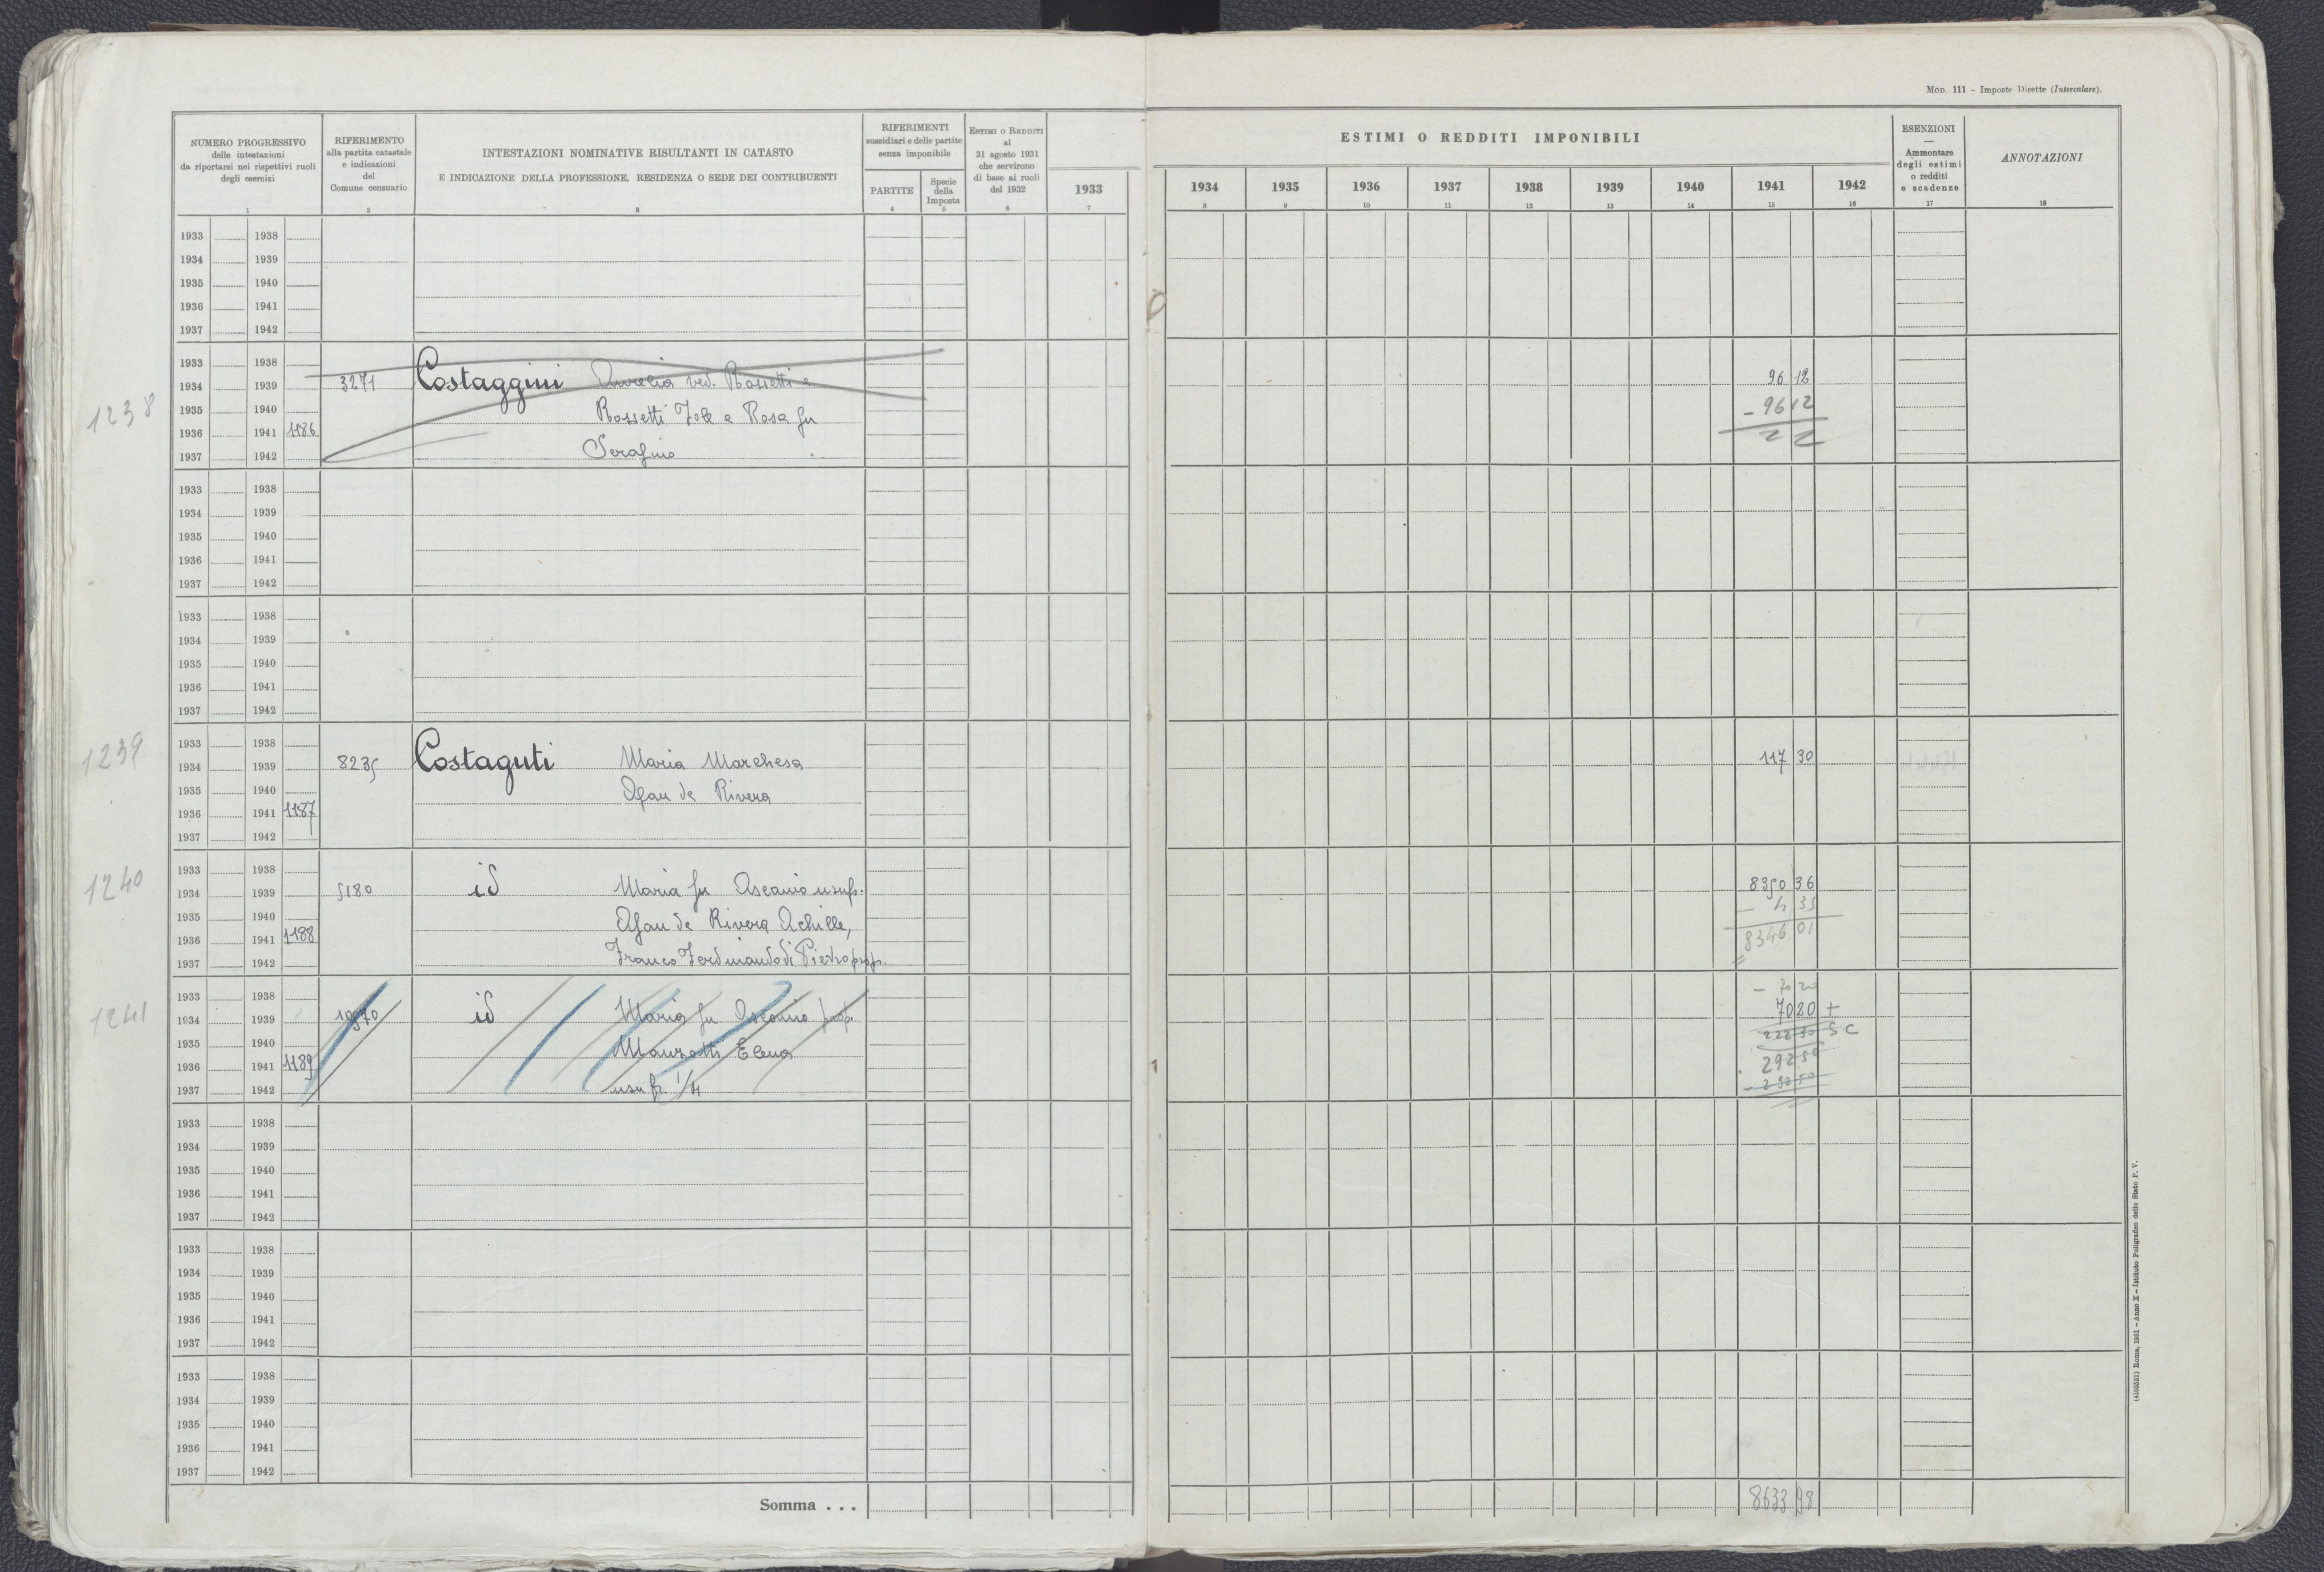 Mod. 111 – Imposte Dirette (Intercalare).
NUMERO PROGRESSIVO
delle intestazioni
da riportarsi nei rispettivi ruoli
degli esercizi
1
RIFERIMENTO
alla partita catastale
e indicazioni
del
Comune censuario
2
INTESTAZIONI NOMINATIVE RISULTANTI IN CATASTO
E INDICAZIONE DELLA PROFESSIONE, RESIDENZA O SEDE DEI CONTRIBUENTI
3
RIFERIMENTI
sussidiari e delle partite
senza imponibile
PARTITE
4
Specie
della
Imposta
5
Estimi o Redditi
al
31 agosto 1931
che servirono
di base ai ruoli
del 1932
6
1933
7
ESTIMI O REDDITI IMPONIBILI
1934 1935 1936 1937 1938 1939 1940 1941 1942
8 9 10 11 12 13 14 15 16
ESENZIONI
—
Ammontare
degli estimi
o redditi
e scadenze
17
ANNOTAZIONI
18
1933 1938
1934 1939
1935 1940
1936 1941
1937 1942
1933 1938
1934 1939 3271 Costaggini Aurelia ved. Rossetti e 96 12
1238 1935 1940 Rossetti Jole e Rosa fu – 96 12
1936 1941 1186
1937 1942 Serafino
1933 1938
1934 1939
1935 1940
1936 1941
1937 1942
1933 1938
1934 1939
1935 1940
1936 1941
1937 1942
1239 1933 1938
1934 1939 8235 Costaguti Maria Marchesa 117 30
1935 1940 Afan de Rivera
1936 1941 1187
1937 1942
1933 1938
1240 1934 1939 5180 id Maria fu Ascanio usuf. 8350 36
1935 1940 Afan de Rivera Achille, – 4 35
1936 1941 1188 8346 01
1937 1942 Franco Ferdinando di Pietro prop.
1933 1938 – 70 20
1241 1934 1939 id Maria fu Ascanio prop. 70 20 +
1935 1940 Manzotti Elena 222 30 SC
1936 1941 1189 292 50
1937 1942 usufr. 1/4 – 292 50
1933 1938
1934 1939
1935 1940
1936 1941
1937 1942
1933 1938
1934 1939
1935 1940
1936 1941
1937 1942
1933 1938
1934 1939
1935 1940
1936 1941
1937 1942
Somma . . . 8633 98
(4109351) Roma, 1931 – Anno X – Istituto Poligrafico dello Stato P. V.